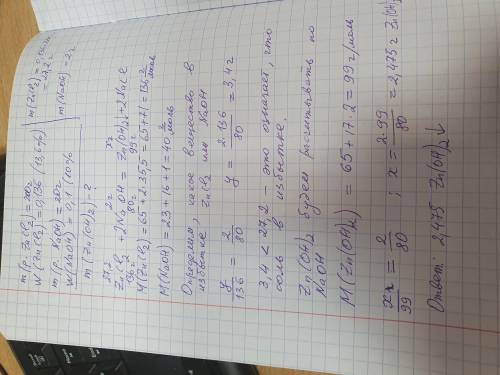 m(р. ZnCl₂) = 200г | m(ZnCl₂) =
W(ZnCl₂) = 0,136 (13,6%) | = 27,2 г
m(р. NaOH) = 20г | m(NaOH) = 2г
W(NaOH) = 0,1 (10%)
m(Zn(OH)₂) - ?
27,2 2г xг
ZnCl₂ + 2NaOH = Zn(OH)₂ + 2NaCl
136г 80г 99г
M(ZnCl₂) = 65 + 2·35,5 = 65 + 71 = 136 г/моль
M(NaOH) = 23 + 16 + 1 = 40 г/моль
Определим, какое вещество в
избытке ZnCl₂ или NaOH
y/136 = 2/80 y = 2·136/80 = 3,4г
3,4 < 27,2 – это означает, что
соль в избытке.
Zn(OH)₂ будем расчитывать по
NaOH
M(Zn(OH)₂) = 65 + 17·2 = 99 г/моль
xг/99 = 2/80 ; x = 2·99/80 = 2,475г Zn(OH)₂
Ответ: 2,475 Zn(OH)₂↓